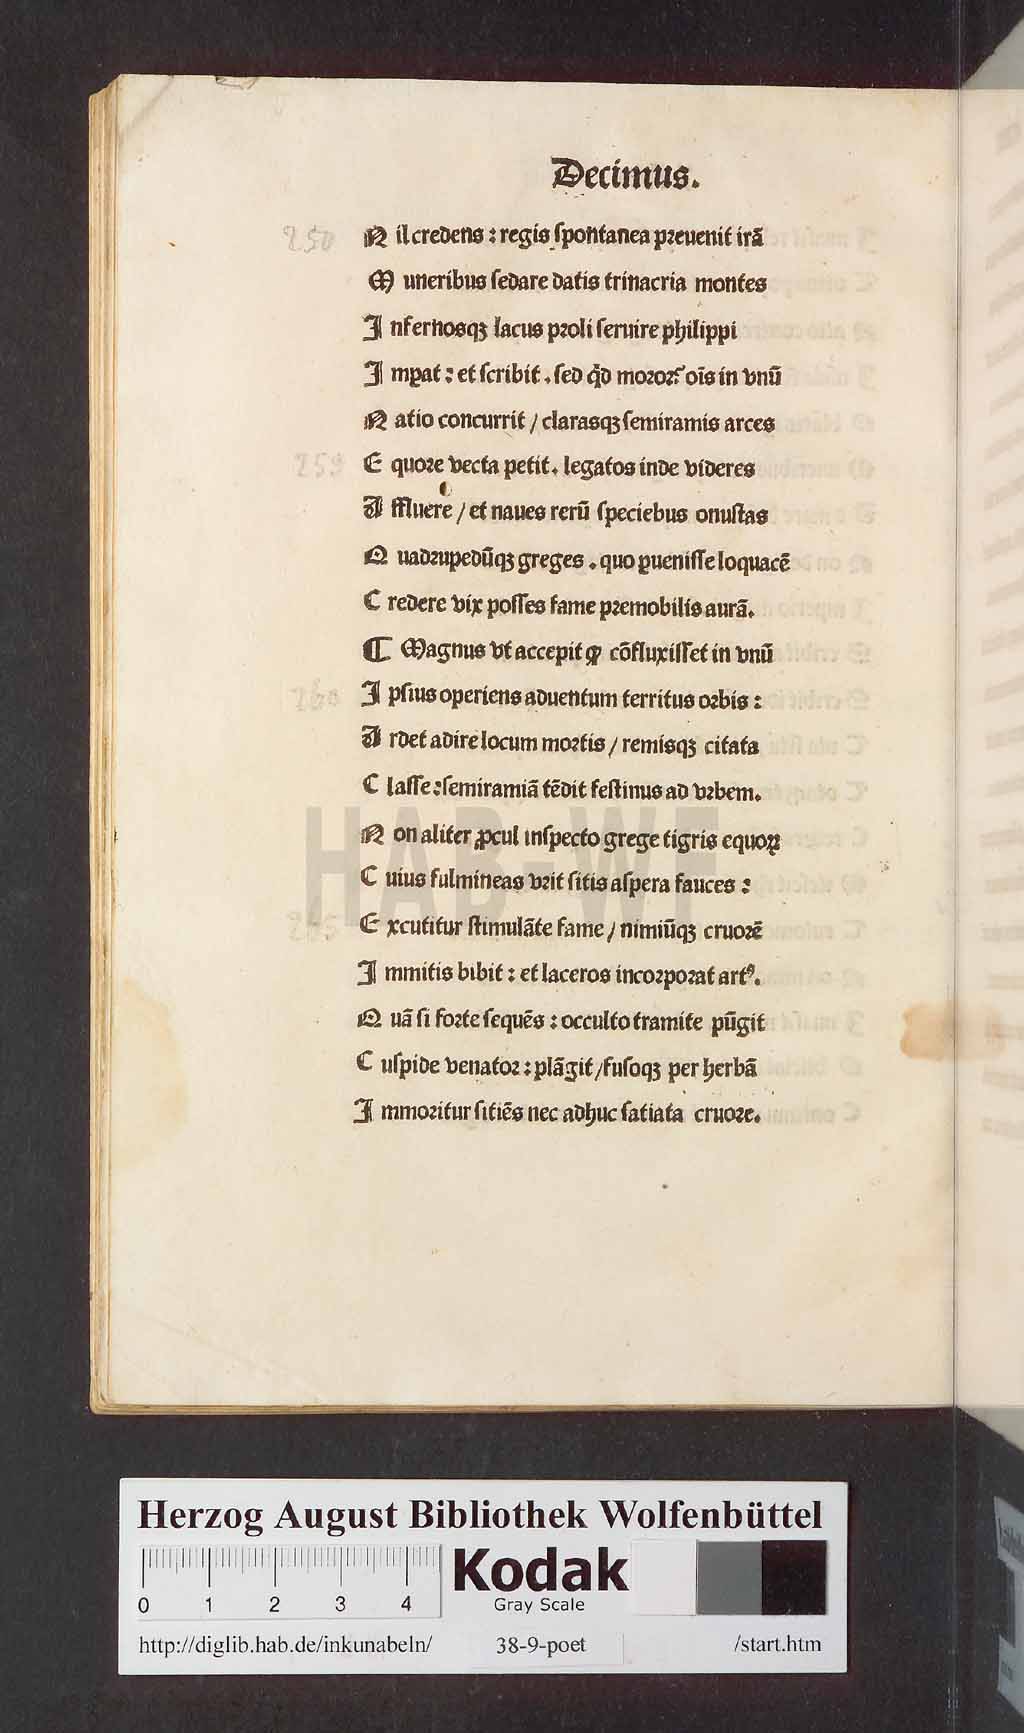 Decimus.
250 N il credens : regis ſpontanea pꝛeuenit irã
M uneribus ſedare datis trinacria montes
I nfernosqꝫ lacus pꝛoli ſeruire philippi
I mꝑat : et ſcribit . ſed qͥd moꝛoꝛ? oĩs in vnũ
N atio concurrit / clarasqꝫ ſemiramis arces
259 E quoꝛe vecta petit . legatos inde videres
A ffluere / et naues rerũ ſpeciebus onuſtas
Q uadꝛupedũqꝫ greges . quo ꝑueniſſe loquacẽ
C redere vix poſſes fame pꝛemobilis aurã.
¶ Magnus vt accepit ꝙ cõfluxiſſet in vnũ
260 I pſius operiens aduentum territus oꝛbis :
A rdet adire locum moꝛtis / remisqꝫ citata
C laſſe : ſemiramiã tẽdit feſtinus ad vꝛbem.
N on aliter ꝓcul inſpecto grege tigris equoꝝ
C uius fulmineas vꝛit ſitis aſpera fauces :
265 E xcutitur ſtimulãte fame / nimiũqꝫ cruoꝛẽ
I mmitis bibit : et laceros incoꝛpoꝛat artꝰ.
Q uã ſi foꝛte ſequẽs : occulto tramite pũgit
C uſpide venatoꝛ : plãgit / fuſoqꝫ per herbã
I mmoꝛitur ſitiẽs nec adhuc ſatiata cruoꝛe.
HAB-WF
Herzog August Bibliothek Wolfenbüttel
0 1 2 3 4
Kodak
Gray Scale
http://diglib.hab.de/inkunabeln/ 38-9-poet /start.htm